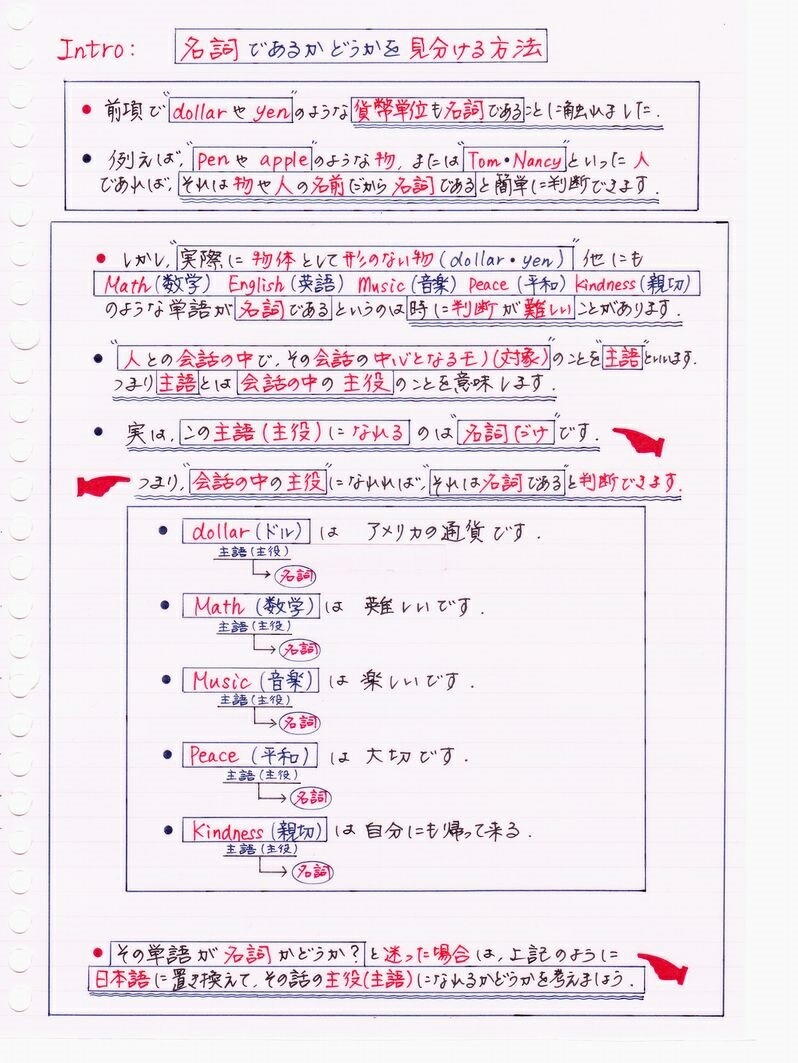 Intro: 名詞であるかどうかを見分ける方法
● 前項で"dollarやyen"のような貨幣単位も名詞であることに触れました.
● 例えば,"penやapple"のような物,または"Tom・Nancy"といった人
であれば,それは物や人の名前だから名詞であると簡単に判断できます.
● しかし,"実際に物体として形のない物(dollar・yen)"他にも
Math(数学) English(英語) Music(音楽) Peace(平和) Kindness(親切)
のような単語が名詞であるというのは時に判断が難しいことがあります.
● "人との会話の中で,その会話の中心となるモノ(対象)"のことを"主語"といいます.
つまり主語とは会話の中の主役のことを意味します.
● 実は,この主語(主役)になれるのは"名詞だけ"です.
つまり,"会話の中の主役"になれれば,"それは名詞である"と判断できます.
● dollar(ドル)は アメリカの通貨です.
主語(主役)
→名詞
● Math(数学)は 難しいです.
主語(主役)
→名詞
● Music(音楽)は 楽しいです.
主語(主役)
→名詞
● Peace(平和)は 大切です.
主語(主役)
→名詞
● Kindness(親切)は自分にも帰って来る.
主語(主役)
→名詞
● "その単語が名詞かどうか?"と迷った場合は,上記のように
日本語に置き換えて,その話の主役(主語)になれるかどうかを考えましょう.